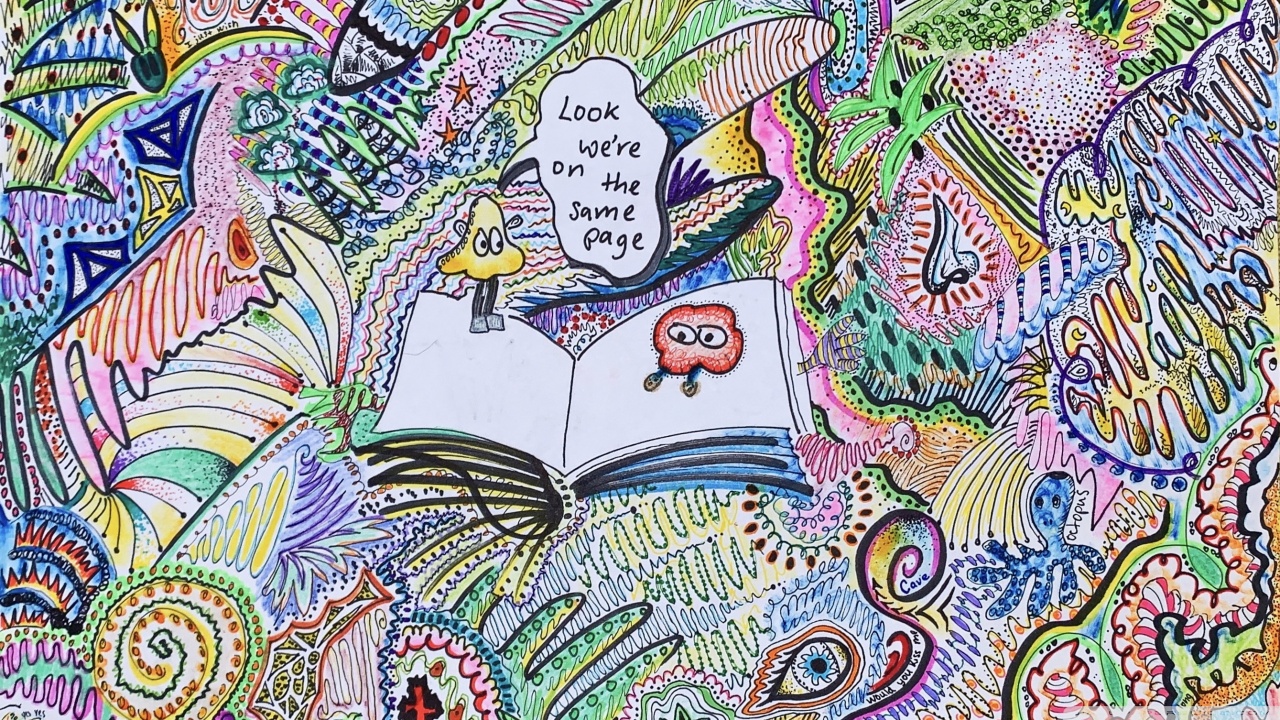 Look
we're
on the
same
page
octopus
Cave
would you kiss me
yes